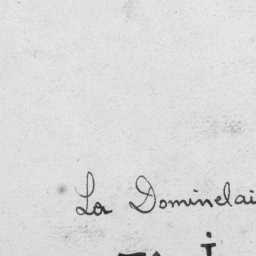 La Dominelai